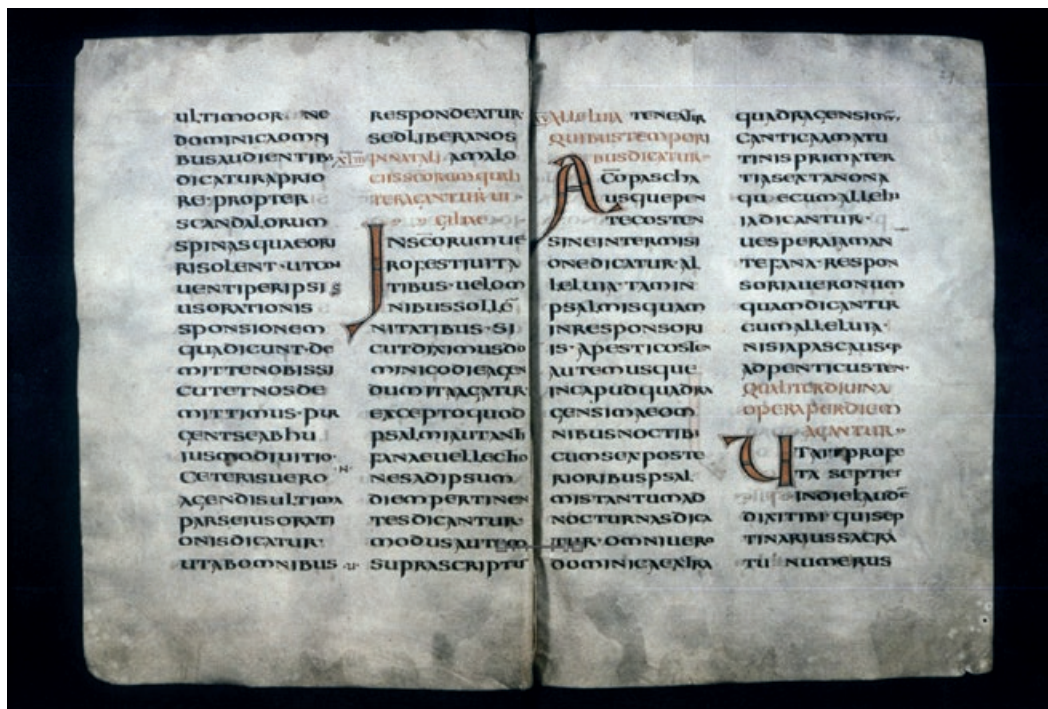 ultimo or ne
dominica omn
bus audientib;
dicatur a prio
re propter
scandalorum
spinas quae ori
ri solent · ut con
uenti per ipsi s
us orationis
sponsionem
qua dicunt · de
mitte nobis si
cut et nos de
mittimus · pur
gent se ab hu
iusmodi uitio ·
Ceteris uero
agendis ultima
pars eius orati
onis dicatur ·
ut ab omnibus
respondeatur
sed libera nos
XIIII IN NATALI a malo
CIIS SCORUM QUALI
TER AGANTUR UI
GILIAE
IN SCORUM UE
RO FESTIUITA
TIBUS · uel om
nibus sollem
nitatibus · si
cut diximus do
minico die agen
dum ita agatur
excepto quod
psalmi aut anti
fanae uel lectio
nes ad ipsum
diem pertinen
tes dicantur
modus autem
suprascriptus
ALLELUIA teneatur
QUIBUS TEMPORI
BUS DICATUR
A sco pascha
usque pen
tecosten
sine intermisi
one dicatur · al
leluia · tam in
psalmis quam
in responsori
is · a penticosten
autem usque
in caput quadra
gensimae om
nibus noctibus
cum sex poste
rioribus psal
mis tantum ad
nocturnas dica
tur · omni uero
dominica extra
quadragensima,
cantica matu
tinis prima ter
tia sexta nona
que cum allelu
ia dicantur ·
uespera iam an
tefana · respon
soria uero num
quam dicantur
cum alleluia ·
nisi a pascha usq;
ad penticusten ·
QUALITER DIUINA
OPERA PER DIEM
AGANTUR
UT ait profe
ta septies
in die laudem
dixi tibi qui sep
tinarius sacra
tus numerus